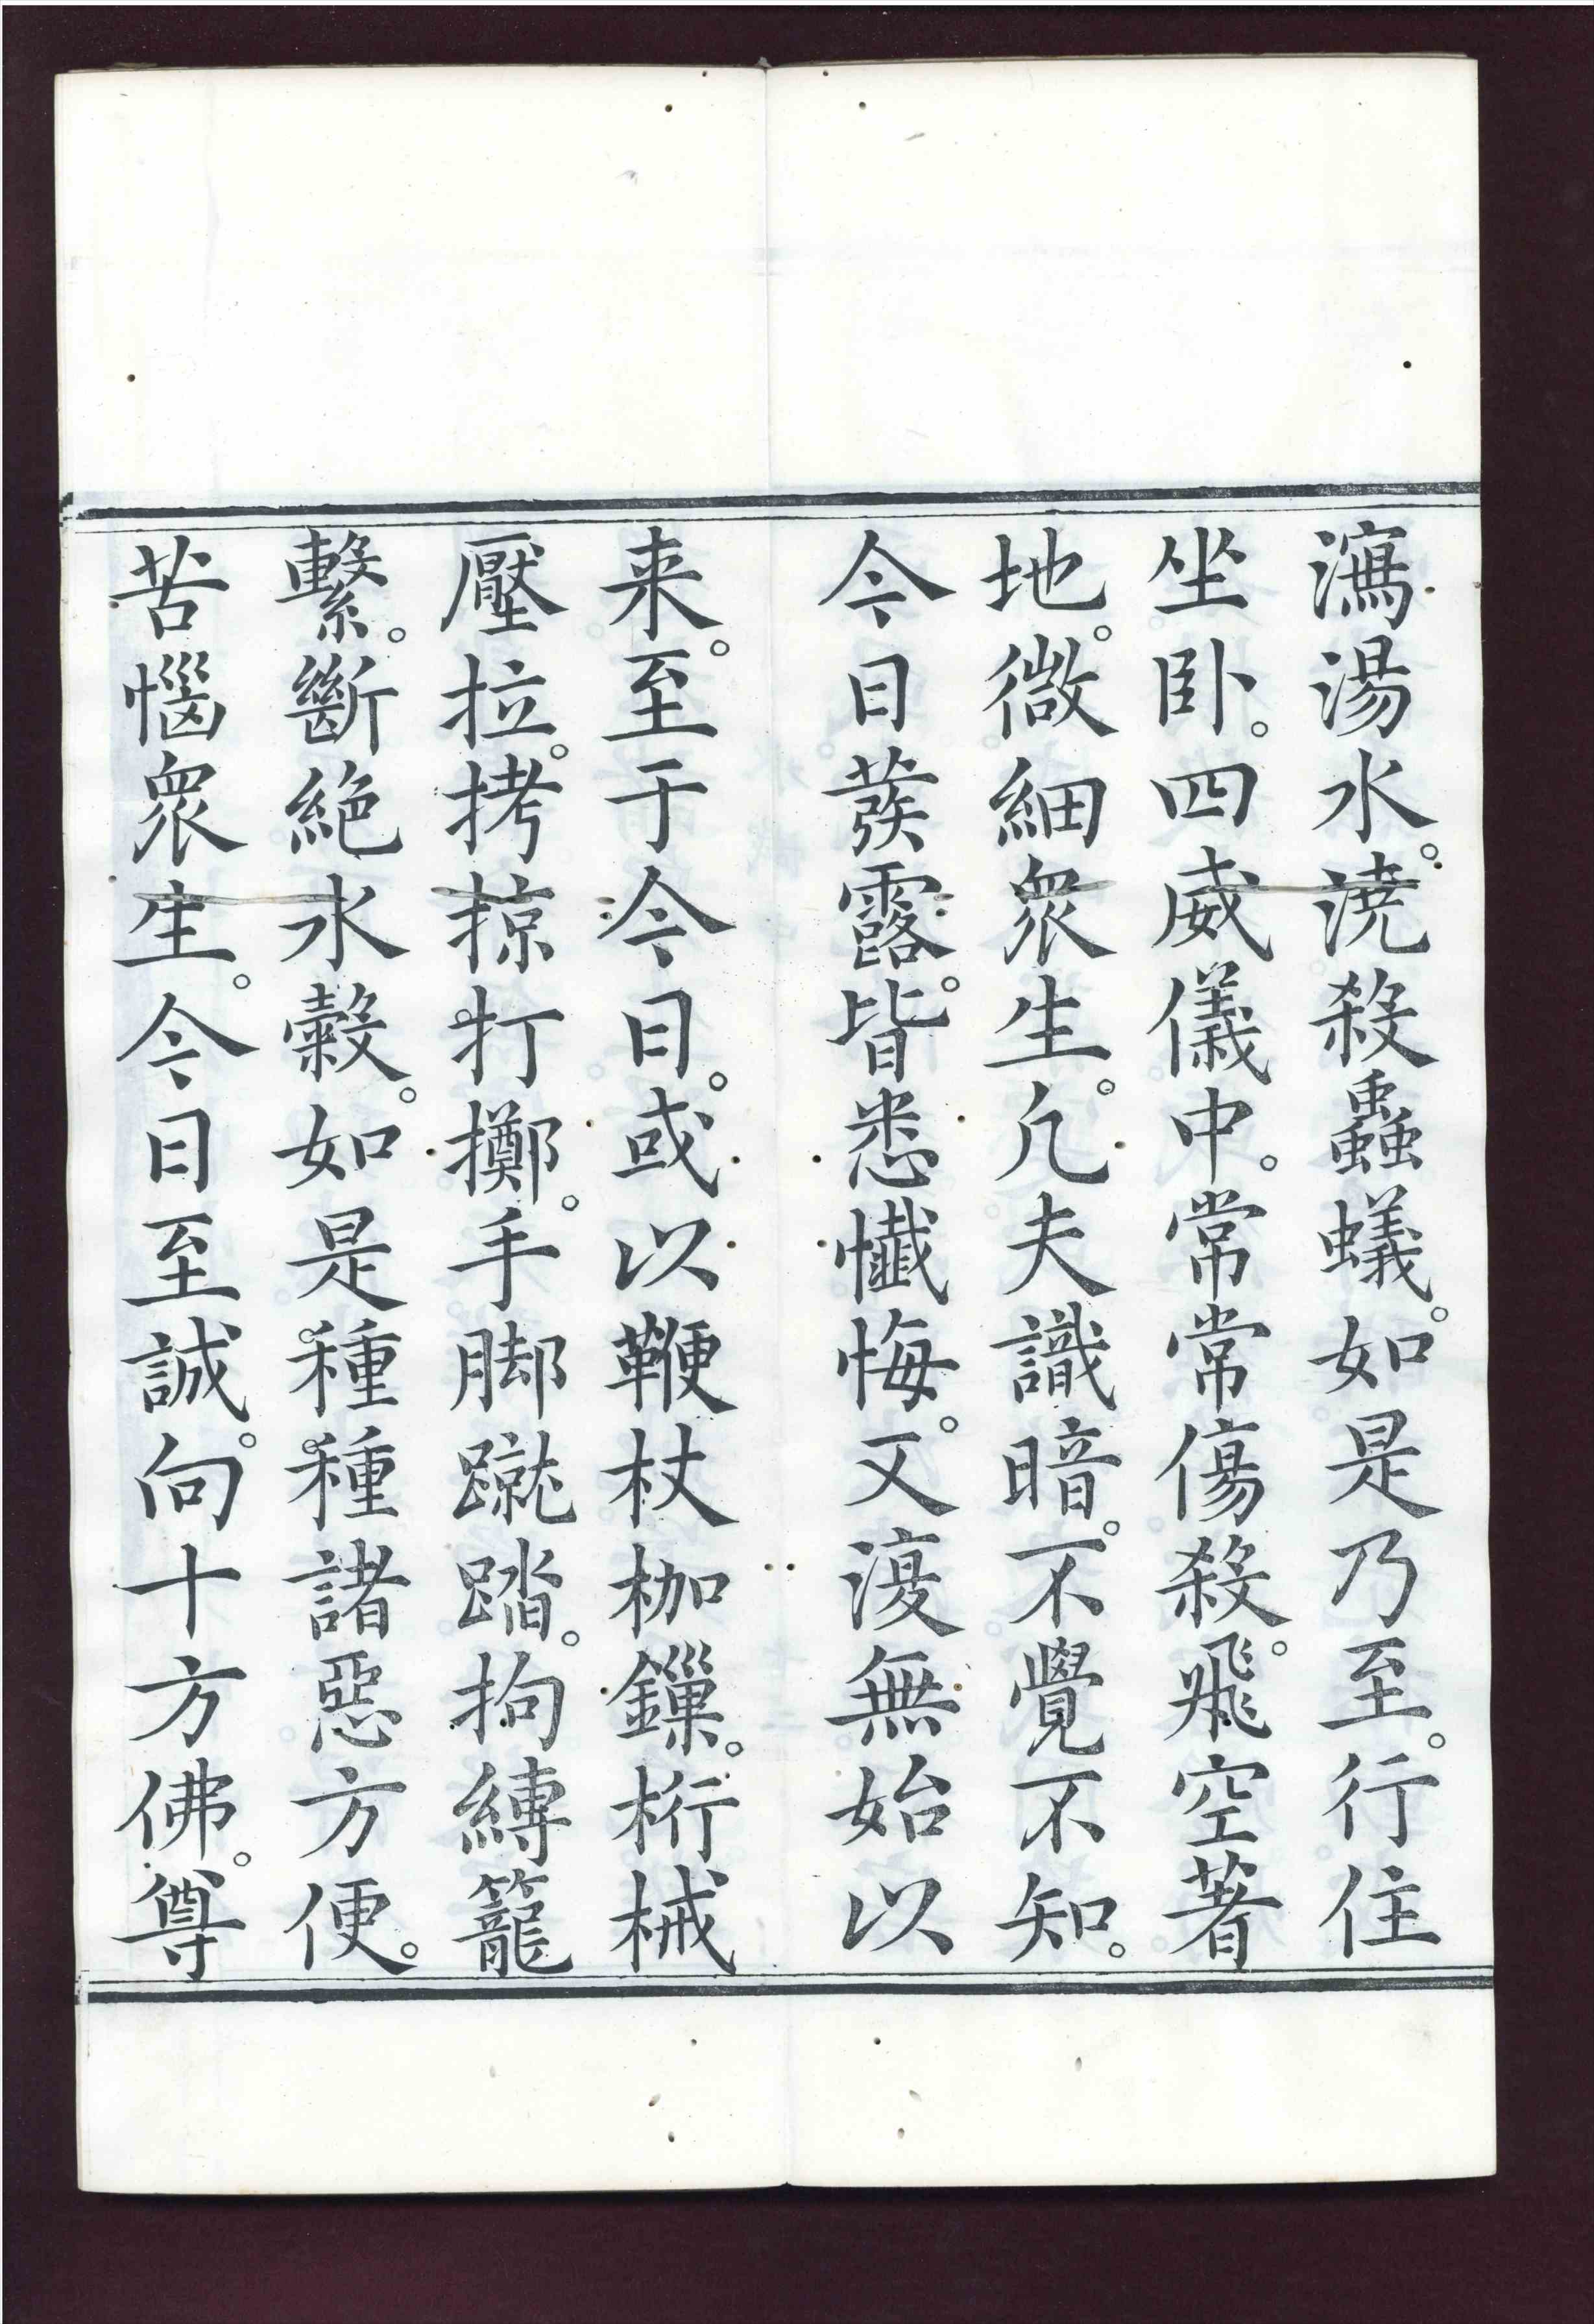 瀉湯水。澆殺蟲蟻。如是乃至。行住
坐卧。四威儀中。常常傷殺。飛空著
地。微細衆生。凢夫識暗。不覺不知。
今日發露。皆悉懺悔。又復無始以
来。至于今日。或以鞭杖枷鏁。桁械
壓拉。拷掠打擲。手脚蹴踏。拘縛籠
繫。斷絕水穀。如是種種諸惡方便。
苦惱衆生。今日至誠。向十方佛。尊